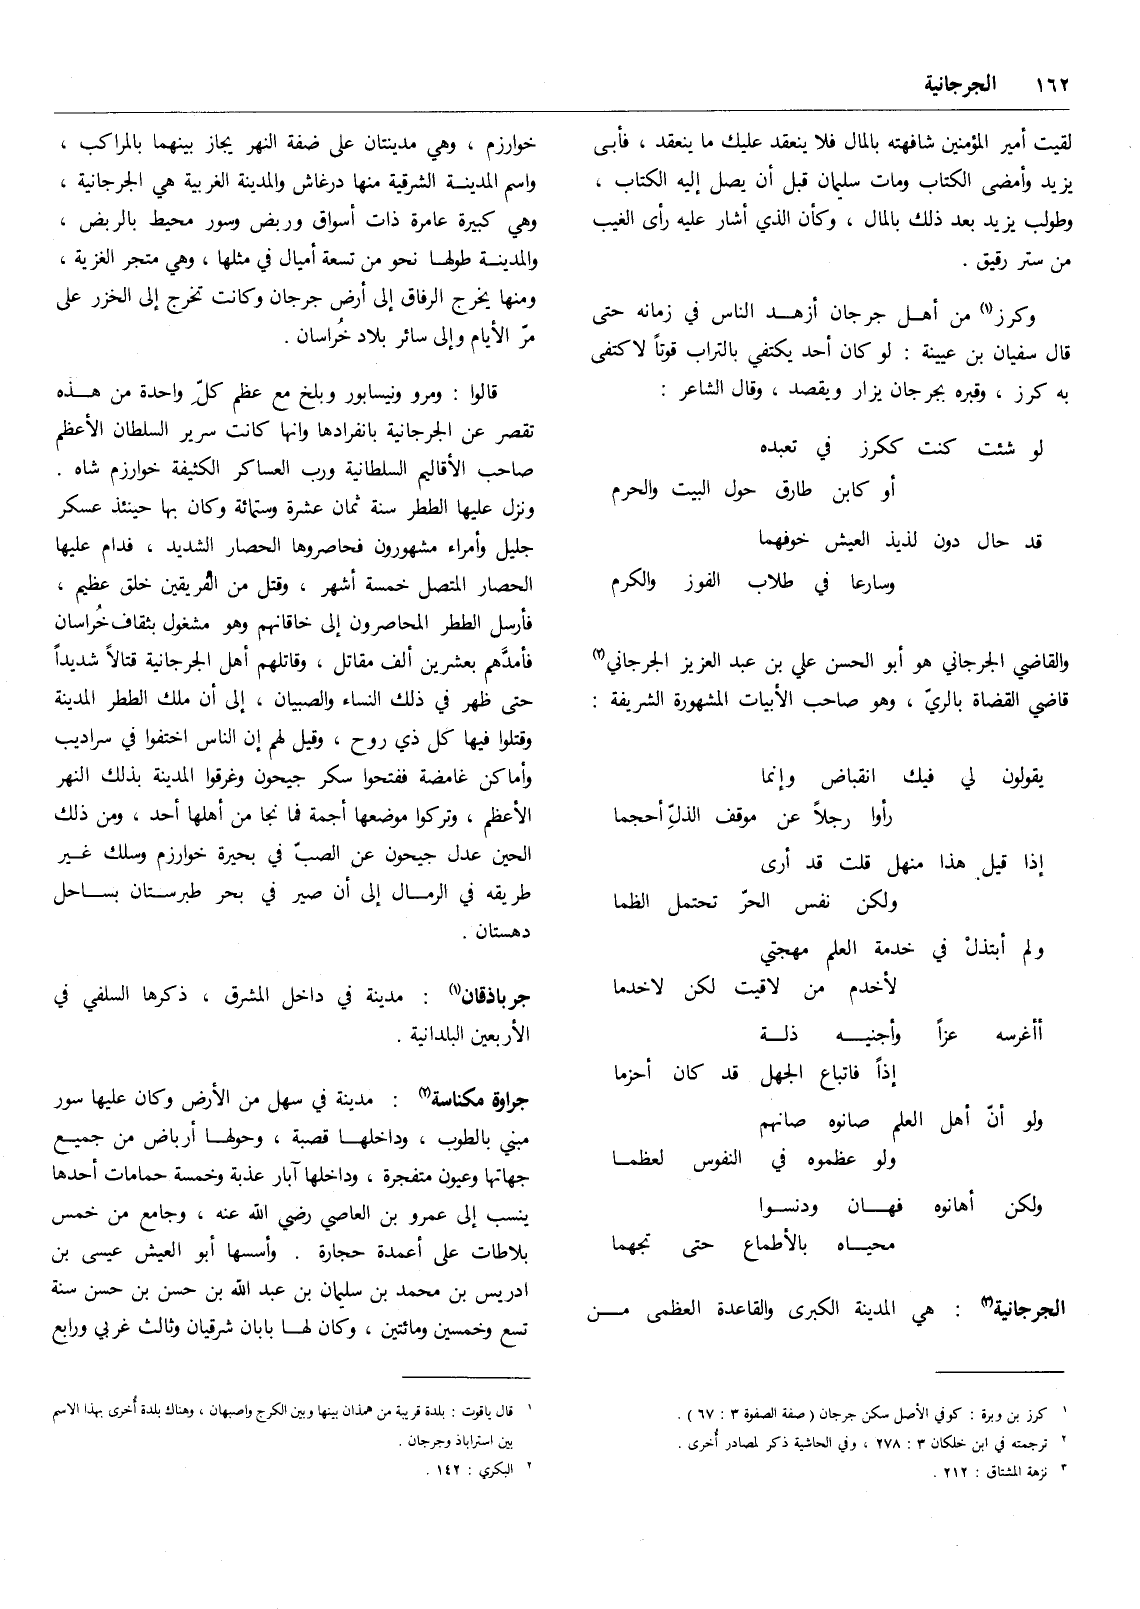 ١٦٢ الجرجانية
لقيت أمير المؤمنين شافهته بالمال فلا ينعقد عليك ما ينعقد ، فأبى
يزيد وأمضى الكتاب ومات سليمان قبل أن يصل إليه الكتاب ،
وطولب يزيد بعد ذلك بالمال ، وكأن الذي أشار عليه رأى الغيب
من ستر رقيق .
وكرز(١) من أهل جرجان أزهد الناس في زمانه حتى
قال سفيان بن عيينة : لو كان أحد يكتفي بالتراب قوتاً لاكتفى
به كرز ، وقبره بجرجان يزار ويقصد ، وقال الشاعر :
لو شئت كنت ككرز في تعبده
أو كابن طارق حول البيت والحرم
قد حال دون لذيذ العيش خوفهما
وسارعا في طلاب الفوز والكرم
والقاضي الجرجاني هو أبو الحسن علي بن عبد العزيز الجرجاني(٢)
قاضي القضاة بالريّ ، وهو صاحب الأبيات المشهورة الشريفة :
يقولون لي فيك انقباض وإنما
رأوا رجلاً عن موقف الذلّ أحجما
إذا قيل هذا منهل قلت قد أرى
ولكن نفس الحرّ تحتمل الظما
ولم أبتذلْ في خدمة العلم مهجتي
لأخدم من لاقيت لكن لاخدما
أأغرسه عزاً وأجنيه ذلة
إذاً فاتباع الجهل قد كان أحزما
ولو أنّ أهل العلم صانوه صانهم
ولو عظموه في النفوس لعظما
ولكن أهانوه فهان ودنسوا
محياه بالأطماع حتى تجهما
الجرجانية(٣) : هي المدينة الكبرى والقاعدة العظمى من
١ كرز بن وبرة : كوفي الأصل سكن جرجان ( صفة الصفوة ٣ : ٦٧ ) .
٢ ترجمته في ابن خلكان ٣ : ٢٧٨ ، وفي الحاشية ذكر لمصادر أُخرى .
٣ نزهة المشتاق : ٢١٢ .
خوارزم ، وهي مدينتان على ضفة النهر يجاز بينهما بالمراكب ،
واسم المدينة الشرقية منها درغاش والمدينة الغربية هي الجرجانية ،
وهي كبيرة عامرة ذات أسواق وربض وسور محيط بالربض ،
والمدينة طولها نحو من تسعة أميال في مثلها ، وهي متجر الغزية ،
ومنها يخرج الرفاق إلى أرض جرجان وكانت تخرج إلى الخزر على
مرّ الأيام وإلى سائر بلاد خُراسان .
قالوا : ومرو ونيسابور وبلخ مع عظم كلّ واحدة من هذه
تقصر عن الجرجانية بانفرادها وانها كانت سرير السلطان الأعظم
صاحب الأقاليم السلطانية ورب العساكر الكثيفة خوارزم شاه .
ونزل عليها الططر سنة ثمان عشرة وستمائة وكان بها حينئذ عسكر
جليل وأمراء مشهورون فحاصروها الحصار الشديد ، فدام عليها
الحصار المتصل خمسة أشهر ، وقتل من الفريقين خلق عظيم ،
فأرسل الططر المحاصرون إلى خاقانهم وهو مشغول بثقاف خُراسان
فأمدَّهم بعشرين ألف مقاتل ، وقاتلهم أهل الجرجانية قتالاً شديداً
حتى ظهر في ذلك النساء والصبيان ، إلى أن ملك الططر المدينة
وقتلوا فيها كل ذي روح ، وقيل لهم إن الناس اختفوا في سراديب
وأماكن غامضة ففتحوا سكر جيحون وغرقوا المدينة بذلك النهر
الأعظم ، وتركوا موضعها أجمة فما نجا من أهلها أحد ، ومن ذلك
الحين عدل جيحون عن الصبّ في بحيرة خوارزم وسلك غير
طريقه في الرمال إلى أن صير في بحر طبرستان بساحل
دهستان .
جرباذقان(١) : مدينة في داخل المشرق ، ذكرها السلفي في
الأربعين البلدانية .
جراوة مكناسة(٢) : مدينة في سهل من الأرض وكان عليها سور
مبني بالطوب ، وداخلها قصبة ، وحولها أرباض من جميع
جهاتها وعيون متفجرة ، وداخلها آبار عذبة وخمسة حمامات أحدها
ينسب إلى عمرو بن العاصي رضي الله عنه ، وجامع من خمس
بلاطات على أعمدة حجارة . وأسسها أبو العيش عيسى بن
ادريس بن محمد بن سليمان بن عبد الله بن حسن بن حسن سنة
تسع وخمسين ومائتين ، وكان لها بابان شرقيان وثالث غربي ورابع
١ قال ياقوت : بلدة قريبة من همذان بينها وبين الكرج واصبهان ، وهناك بلدة أُخرى بهذا الاسم
بين استراباذ وجرجان .
٢ البكري : ١٤٢ .